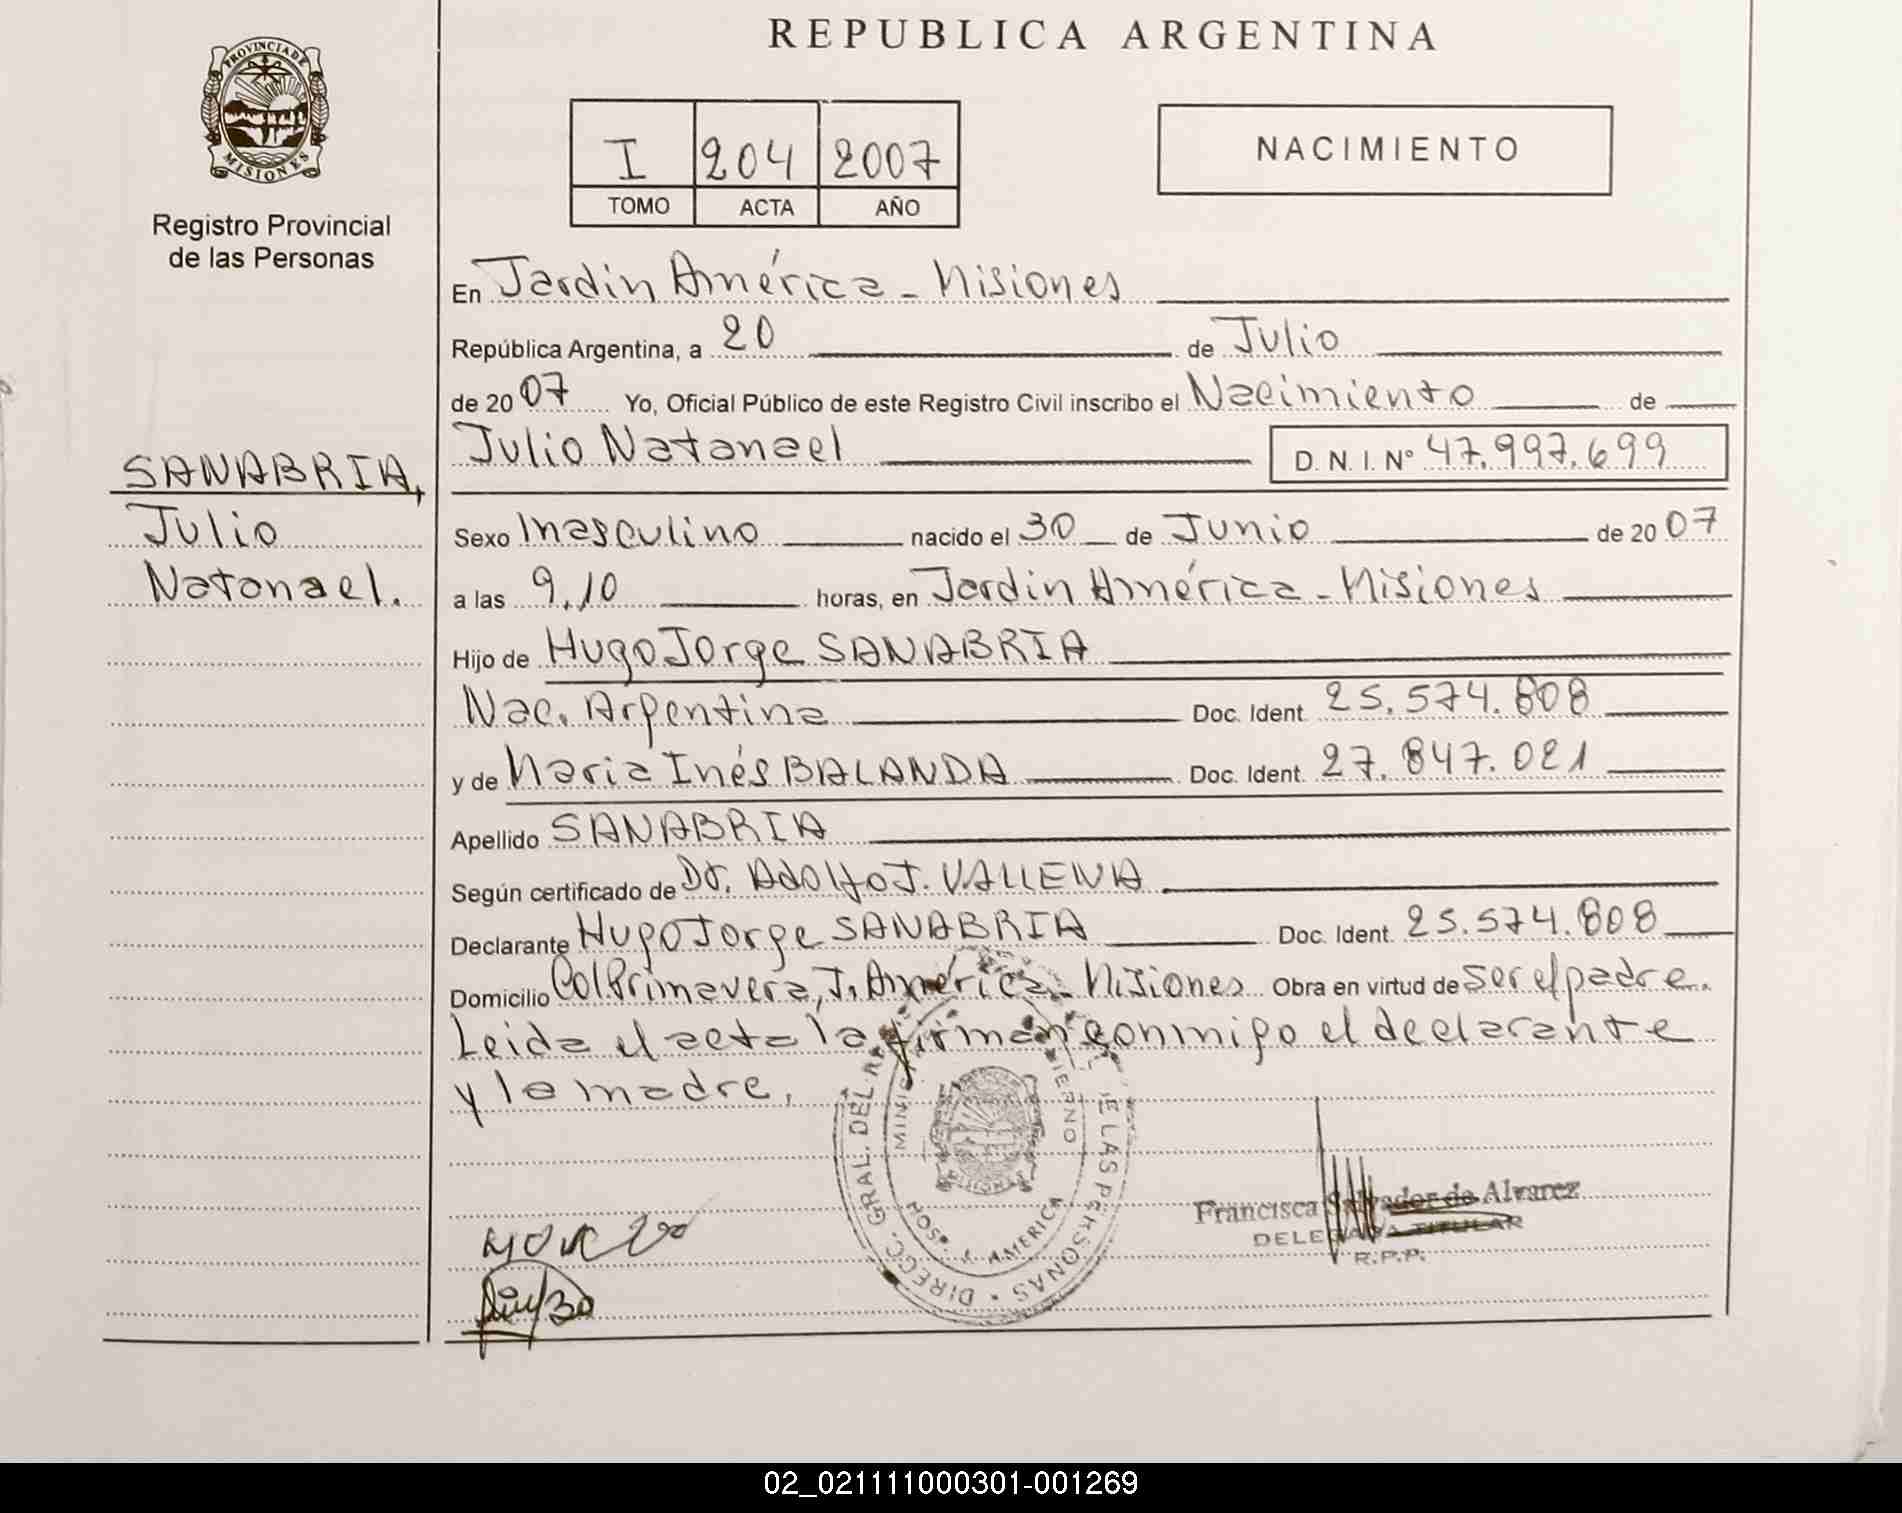 REPUBLICA ARGENTINA
PROVINCIA DE MISIONES
Registro Provincial
de las Personas
I 204 2007
TOMO ACTA AÑO
NACIMIENTO
SANABRIA,
Julio
Natanael.
En Jardín América - Misiones
República Argentina, a 20 de Julio
de 2007 Yo, Oficial Público de este Registro Civil inscribo el Nacimiento de
Julio Natanael D. N. I. N° 47.997.699
Sexo masculino nacido el 30 de Junio de 2007
a las 9,10 horas, en Jardín América - Misiones
Hijo de Hugo Jorge SANABRIA
Nac. Argentina Doc. Ident. 25.574.808
y de María Inés BALANDA Doc. Ident. 27.847.021
Apellido SANABRIA
Según certificado de Dr. Adolfo J. VALLENA
Declarante Hugo Jorge SANABRIA Doc. Ident. 25.574.808
Domicilio Col. Primavera, J. América - Misiones Obra en virtud de ser el padre.
Leida el acta la firman conmigo el declarante
y la madre.
DIRECC. GRAL. DEL E LAS PERSONAS
HOSP. J. AMERICA
Francisca Salvador de Alvarez
DELEGADA TITULAR
R.P.P.
02_021111000301-001269